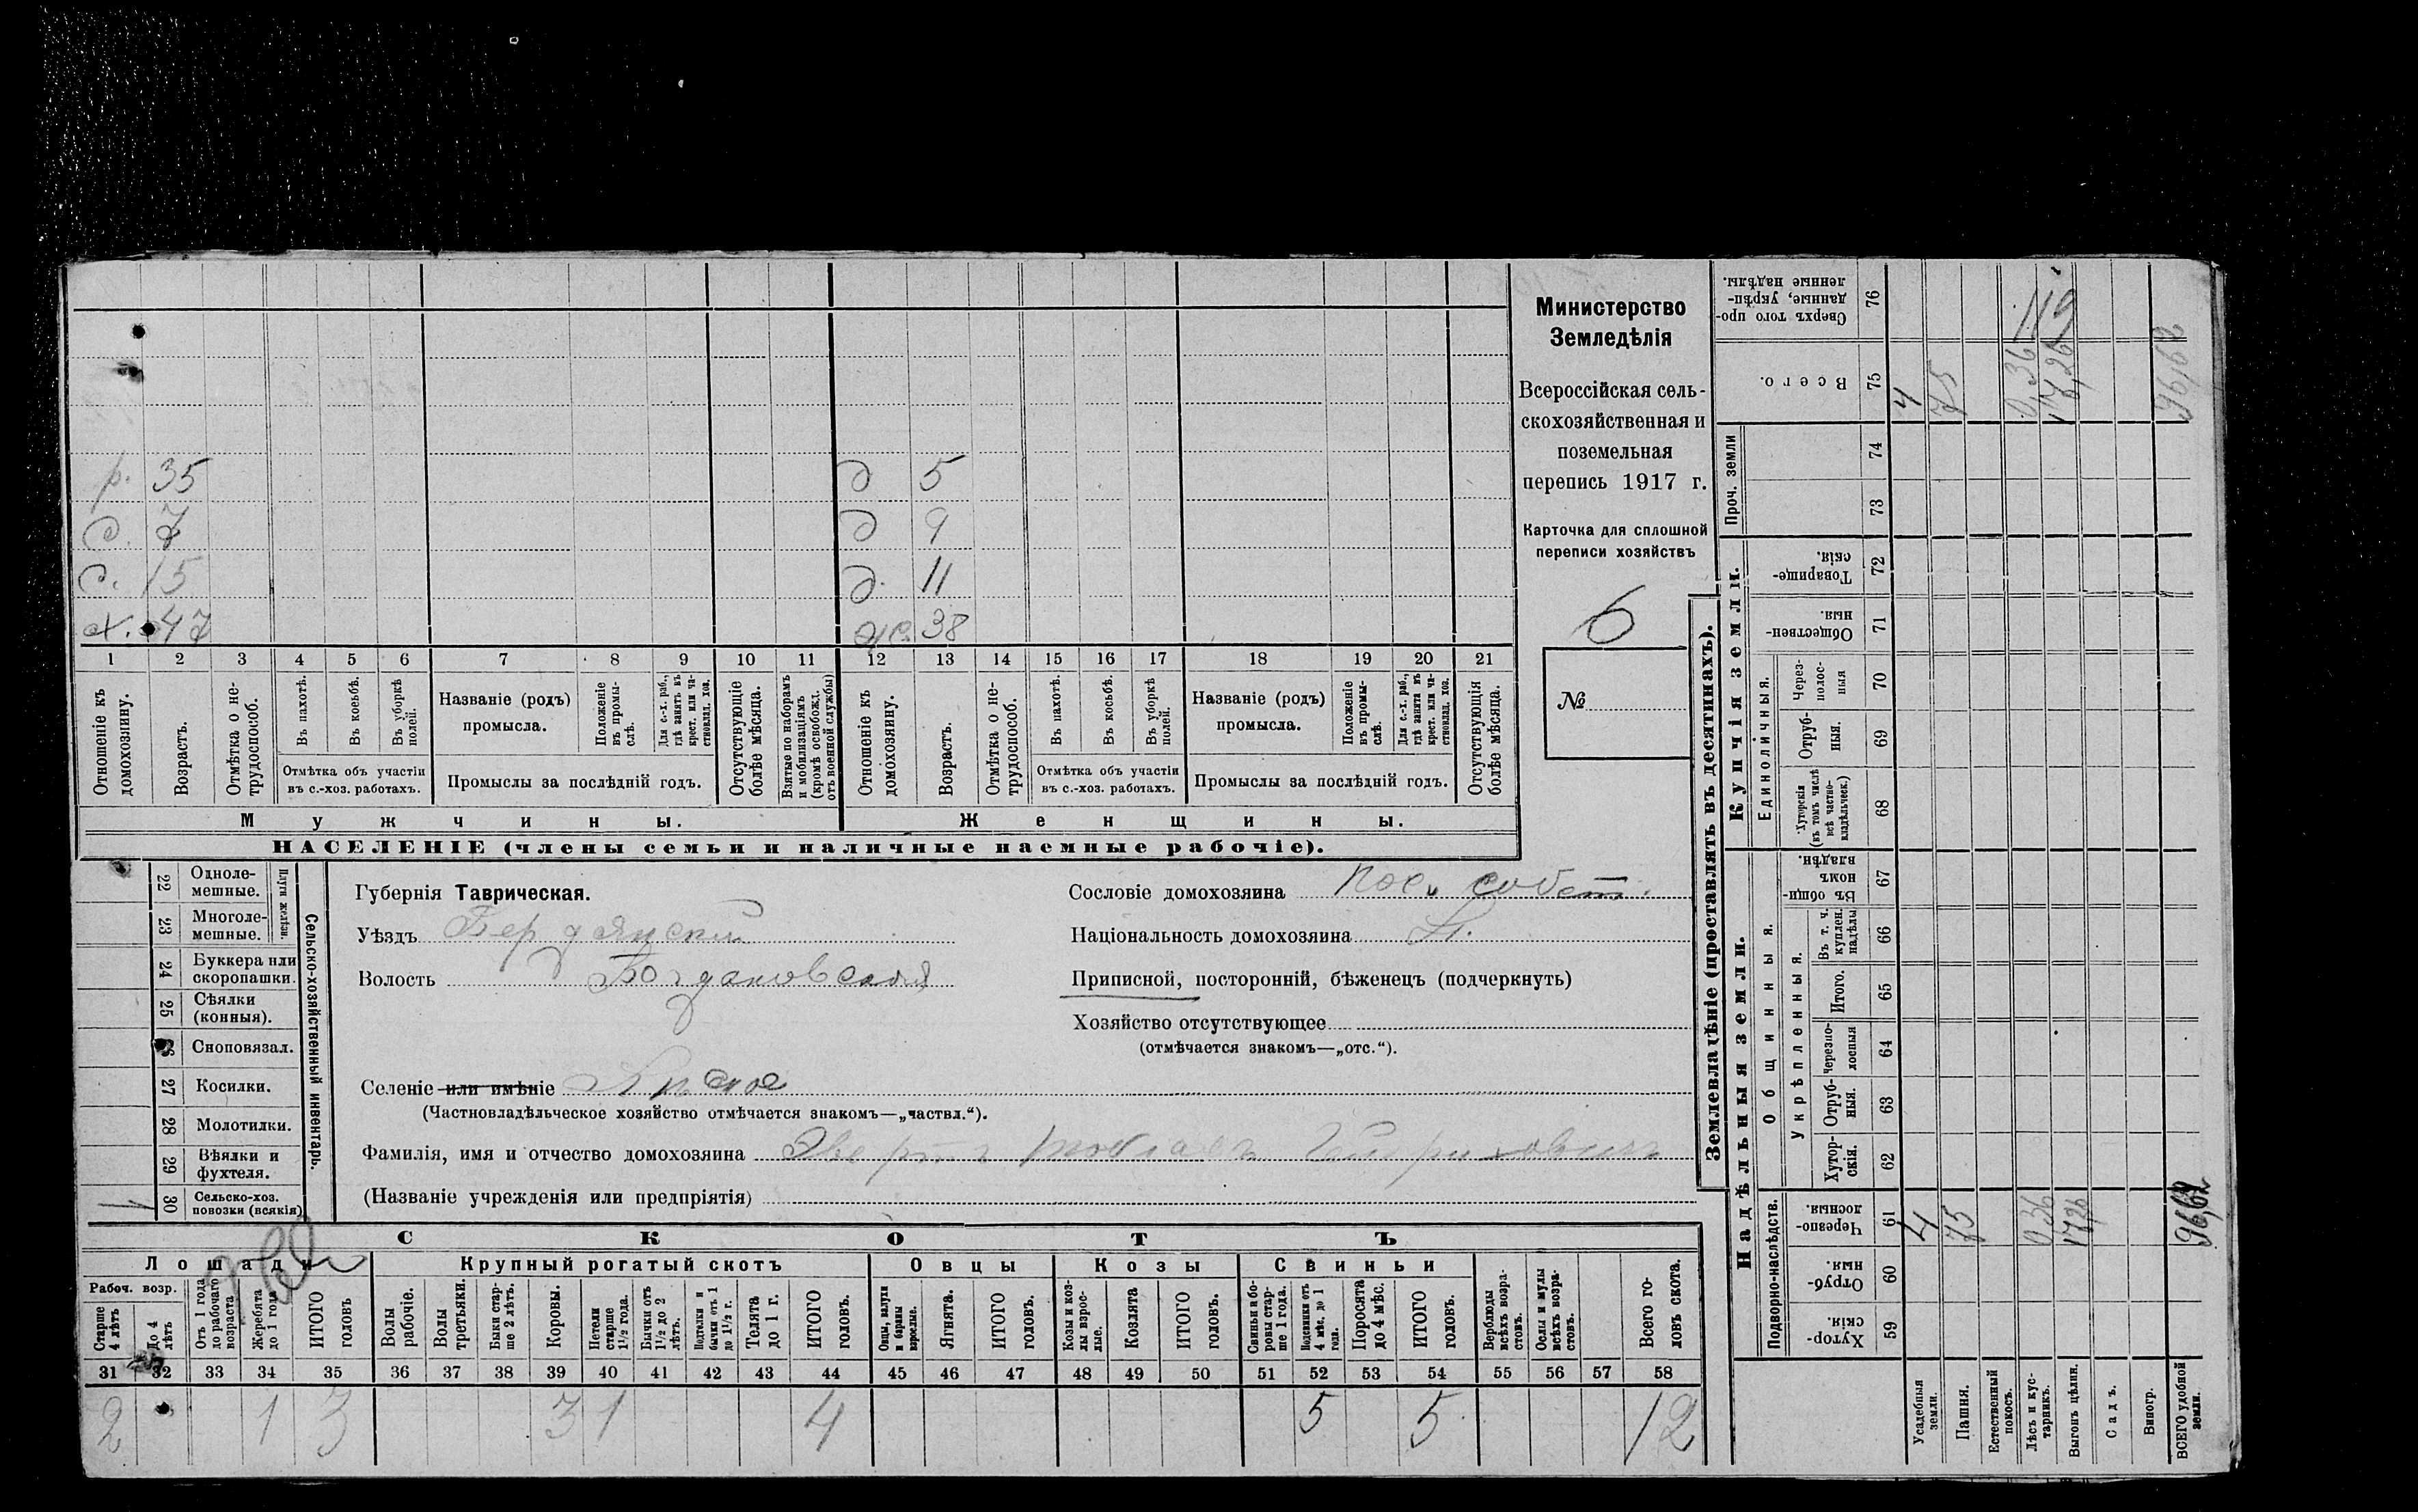 р. 35
с. 7
с. 15
х. 47
д 5
д 9
д. 11
ж. 38
1 2 3 4 5 6 7 8 9 10 11 12 13 14 15 16 17 18 19 20 21
Отношеніе къ домохозяину.
Возрастъ.
Отмѣтка о нетрудоспособ.
Въ пахотѣ.
Въ косьбѣ.
Въ уборкѣ полей.
Отмѣтка объ участіи
въ с.-хоз. работахъ.
Названіе (родъ)
промысла.
Положеніе въ промыслѣ.
Для с.-х. раб., гдѣ занятъ въ крест. или частновлад. хоз.
Промыслы за послѣдній годъ.
Отсутствующіе болѣе мѣсяца.
Взятые по наборамъ и мобилизаціямъ (кромѣ освобожд. отъ военной службы)
Отношеніе къ домохозяину.
Возрастъ.
Отмѣтка о нетрудоспособ.
Въ пахотѣ.
Въ косьбѣ.
Въ уборкѣ полей.
Отмѣтка объ участіи
въ с.-хоз. работахъ.
Названіе (родъ)
промысла.
Положеніе въ промыслѣ.
Для с.-х. раб., гдѣ занята въ крест. или частновлад. хоз.
Промыслы за послѣдній годъ.
Отсутствующія болѣе мѣсяца.
Мужчины.
Женщины.
НАСЕЛЕНІЕ (члены семьи и наличные наемные рабочіе).
Министерство
Земледѣлія
Всероссійская сель-
скохозяйственная и
поземельная
перепись 1917 г.
Карточка для сплошной
переписи хозяйствъ
6
№
Сельско-хозяйственный инвентарь.
Плуги желѣзн.
22 Однолемешные.
23 Многолемешные.
24 Буккера или скоропашки.
25 Сѣялки (конныя).
26 Сноповязал.
27 Косилки.
28 Молотилки.
29 Вѣялки и фухтеля.
30 Сельско-хоз. повозки (всякія) 1
Губернія Таврическая.
Уѣздъ Бердянский
Волость Богдановская
Селеніе или имѣніе
(Частновладѣльческое хозяйство отмѣчается знакомъ—„частвл.“).
Фамилія, имя и отчество домохозяина
(Названіе учрежденія или предпріятія)
Сословіе домохозяина пос. собст.
Національность домохозяина Н.
Приписной, посторонній, бѣженецъ (подчеркнуть)
Хозяйство отсутствующее
(отмѣчается знакомъ—„отс.“).
СКОТЪ
Лошади
Крупный рогатый скотъ
Овцы
Козы
Свиньи
Рабоч. возр.
Старше 4 лѣтъ
До 4 лѣтъ
Отъ 1 года до рабочаго возраста
Жеребята до 1 года
ИТОГО головъ
Волы рабочіе.
Волы третьяки.
Быки старше 2 лѣтъ.
Коровы.
Нетели старше 1½ года.
Бычки отъ 1½ до 2 лѣтъ.
Подтелки и бычки отъ 1 до 1½ г.
Телята до 1 г.
ИТОГО головъ.
Овцы, валухи и бараны взрослые.
Ягнята.
ИТОГО головъ.
Козы и козлы взрослые.
Козлята
ИТОГО головъ.
Свиньи и боровы старше 1 года.
Подсвинки отъ 4 мѣс. до 1 года.
Поросята до 4 мѣс.
ИТОГО головъ.
Верблюды всѣхъ возрастовъ.
Ослы и мулы всѣхъ возрастовъ.
Всего головъ скота.
31 32 33 34 35 36 37 38 39 40 41 42 43 44 45 46 47 48 49 50 51 52 53 54 55 56 57 58
2 1 3 3 1 4 5 5 12
Землевладѣніе (проставлять въ десятинахъ).
Надѣльныя земли.
Купчія земли.
Проч. земли
Подворно-наслѣдств.
Общинныя.
Укрѣпленныя.
Единоличныя.
Хуторскія. 59
Отрубныя. 60
Черезполосныя. 61
Хуторскія. 62
Отрубныя. 63
Черезполосныя 64
Итого. 65
Въ т. ч. куплен. надѣлы 66
Въ общинномъ владѣн. 67
Хуторскія (въ томъ числѣ всѣ частновладѣльческ.) 68
Отрубныя. 69
Черезполосныя 70
Общественныя. 71
Товарищескія. 72
73
74
Всего. 75
Сверхъ того проданные, укрѣпленные надѣлы. 76
Усадебныя земли. 4 4
Пашня. 75 75
Естественный покосъ.
Лѣсъ и кустарникъ. 0,36 0,36
Выгонъ цѣлин. 17,26 17,26
Садъ.
Виногр.
ВСЕГО удобной земли. 96,62 96,62
119